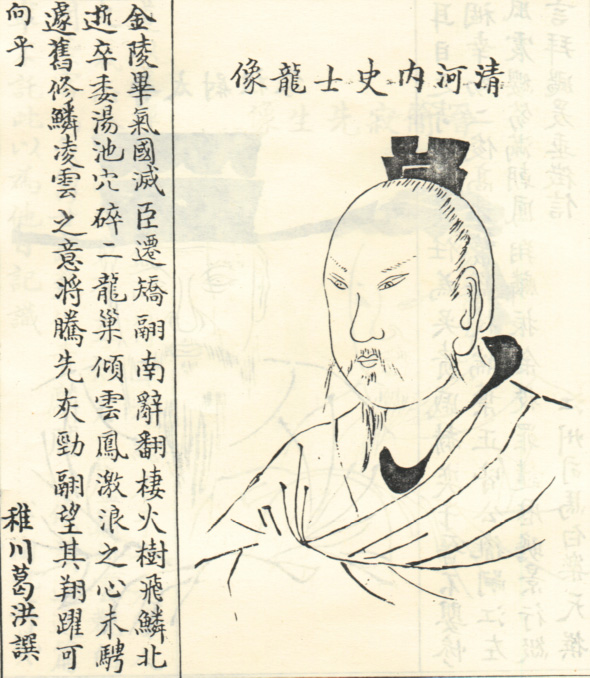 清河内史士龍像
金陵畢氣國滅臣遷矯翮南辭翻棲火樹飛鱗北
逝卒委湯池穴碎二龍巢傾雲鳳激浪之心未騁
遽舊修鱗凌雲之意将騰先灰勁翮望其翔躍可
向乎
稚川葛洪譔